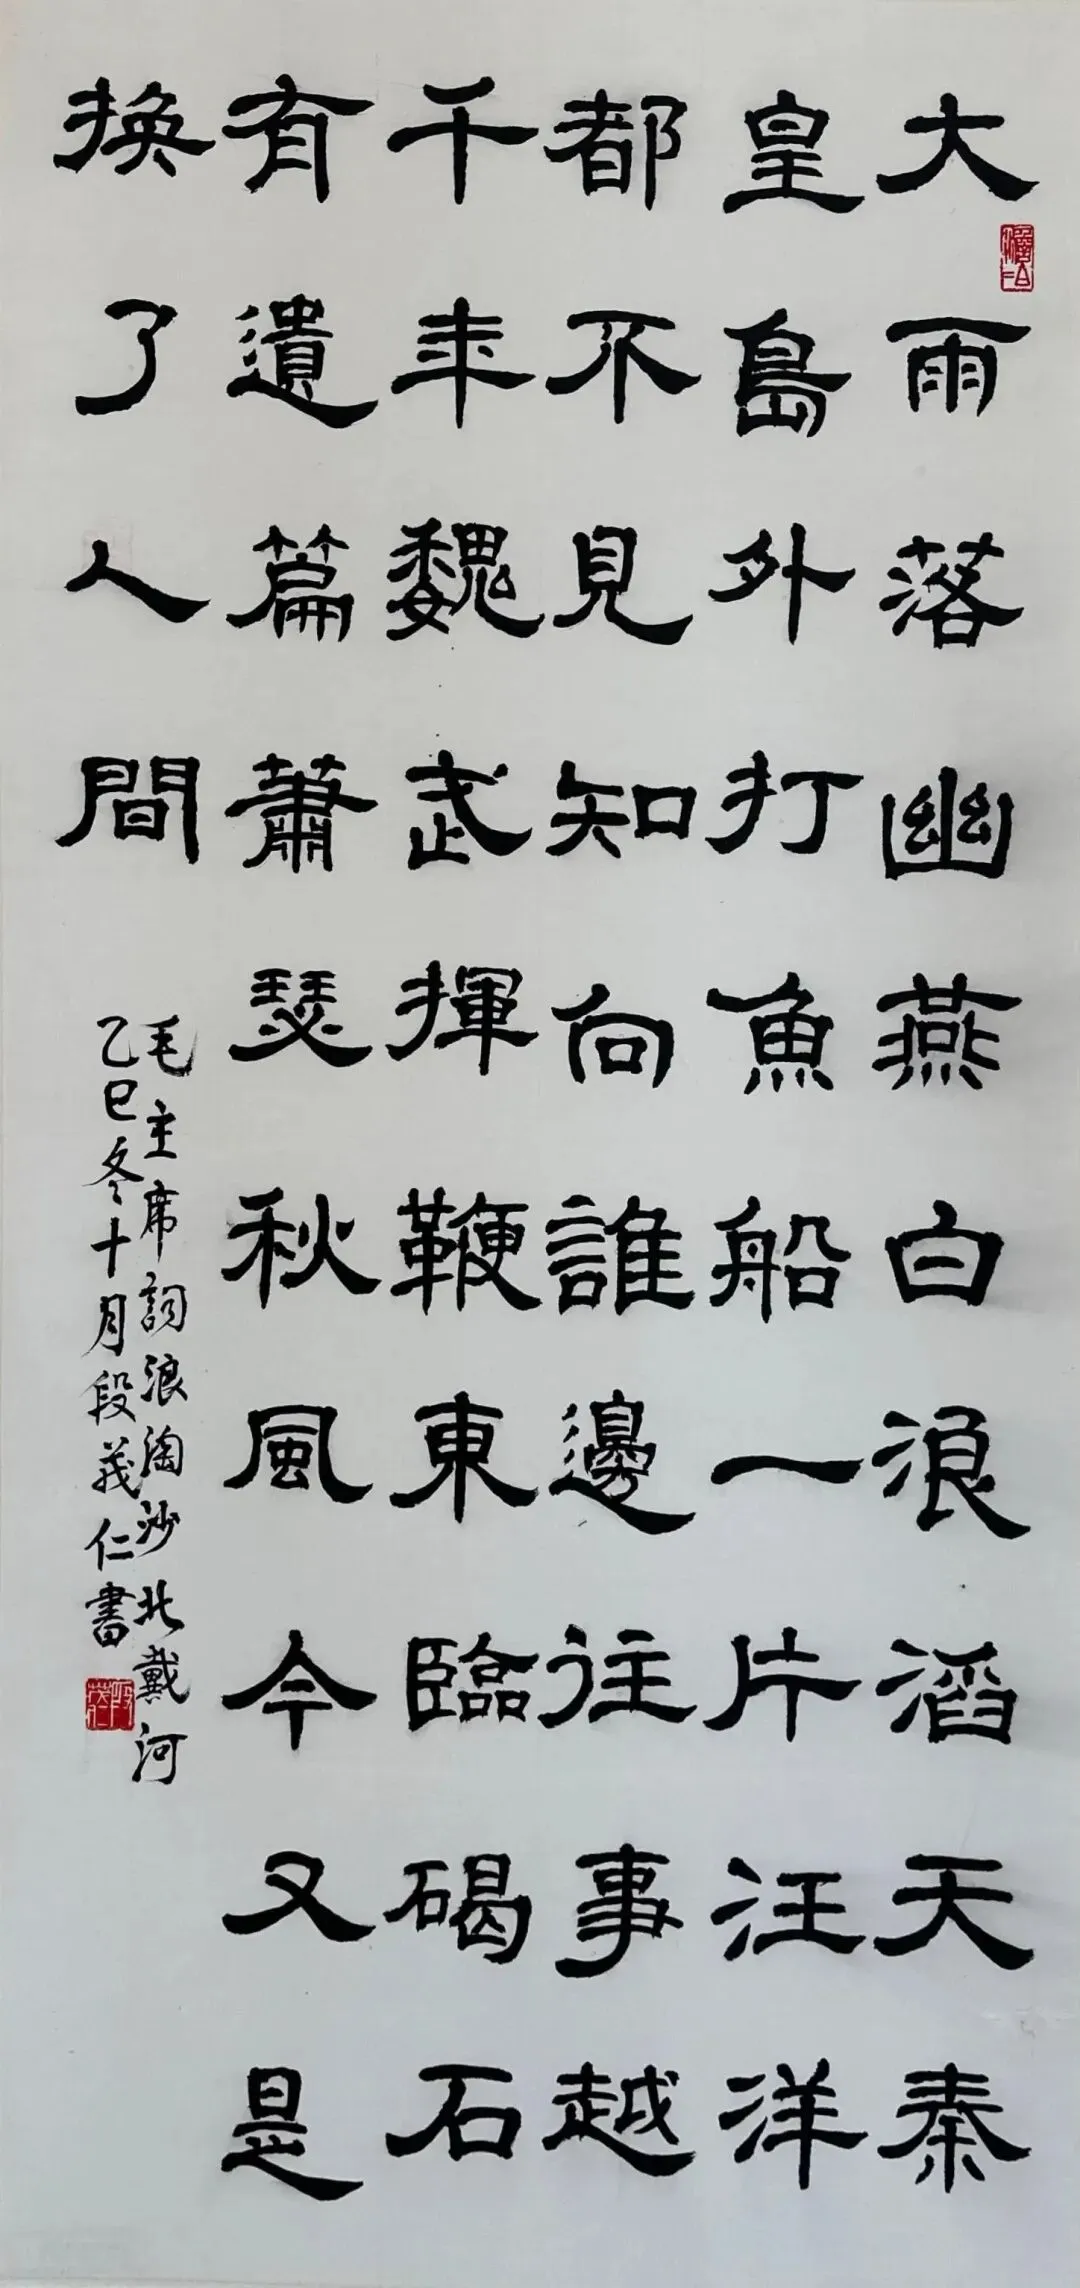 大雨落幽燕白浪滔天秦
皇島外打魚船一片汪洋
都不見知向誰邊往事越
千年魏武揮鞭東臨碣石
有遺篇蕭瑟秋風今又是
換了人間
毛主席詞浪淘沙北戴河
乙巳冬十月段義仁書